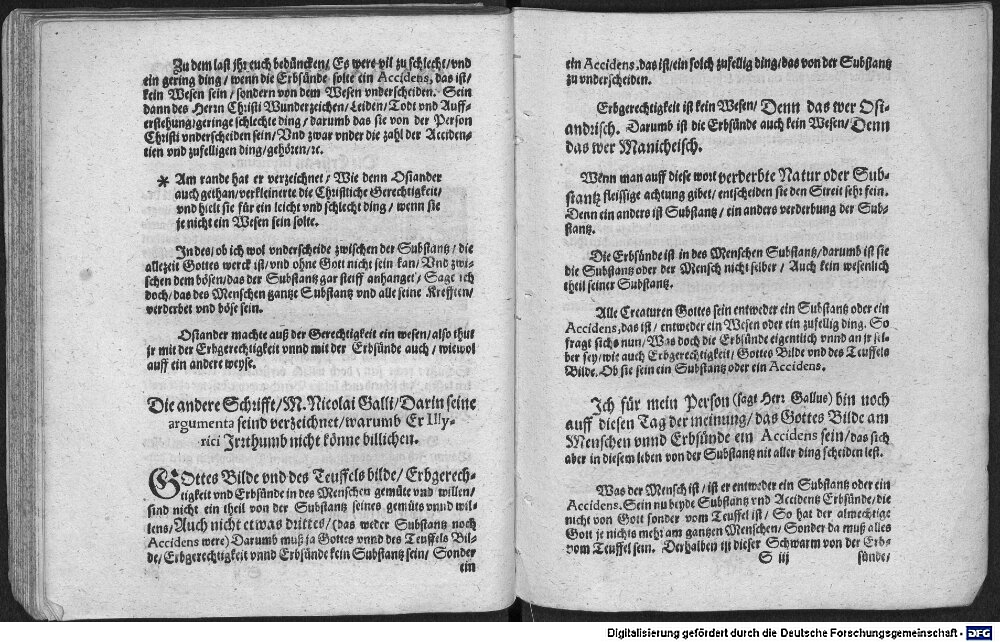 Zu dem last jhr euch bedüncken/ Es were vil zu schlecht/ vnd
ein gering ding/ wenn die Erbsünde solte ein Accidens, das ist/
kein Wesen sein/ sondern von dem Wesen vnderscheiden. Sein
dann des Herrn Christi Wunderzeichen/ Leiden/ Todt vnd Auff-
erstehung/ geringe schlechte ding/ darumb das sie von der Person
Christi vnderscheiden sein/ Vnd zwar vnder die zahl der Acciden-
tien vnd zufelligen ding/ gehören/ ꝛc.
* Am rande hat er verzeichnet/ Wie denn Osiander
auch gethan/ verkleinerte die Christliche Gerechtigkeit/
vnd hielt sie für ein leicht vnd schlecht ding/ wenn sie
je nicht ein Wesen sein solte.
Indes/ ob ich wol vnderscheide zwischen der Substantz/ die
allezeit Gottes werck ist/ vnd ohne Gott nicht sein kan/ Vnd zwi-
schen dem bösen/ das der Substantz gar steiff anhanget/ Sage ich
doch/ das des Menschen gantze Substantz vnd alle seine Krefften/
verderbet vnd böse sein.
Osiander machte auß der Gerechtigkeit ein wesen/ also thut
jr mit der Erbgerechtigkeit vnnd mit der Erbsünde auch/ wiewol
auff ein andere weyse.
Die andere Schrifft/ M. Nicolai Galli/ Darin seine
argumenta seind verzeichnet/ warumb Er Illy-
rici Irrthumb nicht könne billichen.
GOttes Bilde vnd des Teuffels bilde/ Erbgerech-
tigkeit vnd Erbsünde in des Menschen gemüte vnd willen/
sind nicht ein theil von der Substantz seines gemüts vnnd wil-
lens/ Auch nicht etwas drittes/ (das weder Substantz noch
Accidens were) Darumb muß ja Gottes vnnd des Teuffels Bil-
de/ Erbgerechtigkeit vnnd Erbsünde kein Substantz sein/ Sonder
ein
ein Accidens, das ist/ ein solch zufellig ding/ das von der Substantz
zu vnderscheiden.
Erbgerechtigkeit ist kein Wesen/ Denn das wer Osi-
andrisch. Darumb ist die Erbsünde auch kein Wesen/ Denn
das wer Manicheisch.
Wenn man auff diese wort verderbte Natur oder Sub-
stantz fleissige achtung gibet/ entscheiden sie den Streit sehr fein.
Denn ein anders ist Substantz/ ein anders verderbung der Sub-
stantz.
Die Erbsünde ist in des Menschen Substantz/ darumb ist sie
die Substantz oder der Mensch nicht selber/ Auch kein wesenlich
theil seiner Substantz.
Alle Creaturen Gottes sein entweder ein Substantz oder ein
Accidens, das ist/ entweder ein Wesen oder ein zufellig ding. So
fragt sichs nun/ Was doch die Erbsünde eigentlich vnnd an jr sel-
ber sey/ wie auch Erbgerechtigkeit/ Gottes Bilde vnd des Teuffels
Bilde. Ob sie sein ein Substantz oder ein Accidens.
Ich für mein Person (sagt Herr Gallus) bin noch
auff diesen Tag der meinung/ das Gottes Bilde am
Menschen vnnd Erbsünde ein Accidens sein/ das sich
aber in diesem leben von der Substantz nit aller ding scheiden lest.
Was der Mensch ist/ ist er entweder ein Substantz oder ein
Accidens. Sein nu beyde Substantz vnd Accidens Erbsünde/ die
nicht von Gott sonder vom Teuffel ist/ So hat der almechtige
Gott je nichts mehr am gantzen Menschen/ Sonder da muß alles
vom Teuffel sein. Derhalben ist dieser Schwarm von der Erb-
S iij sünde/
Digitalisierung gefördert durch die Deutsche Forschungsgemeinschaft - DFG